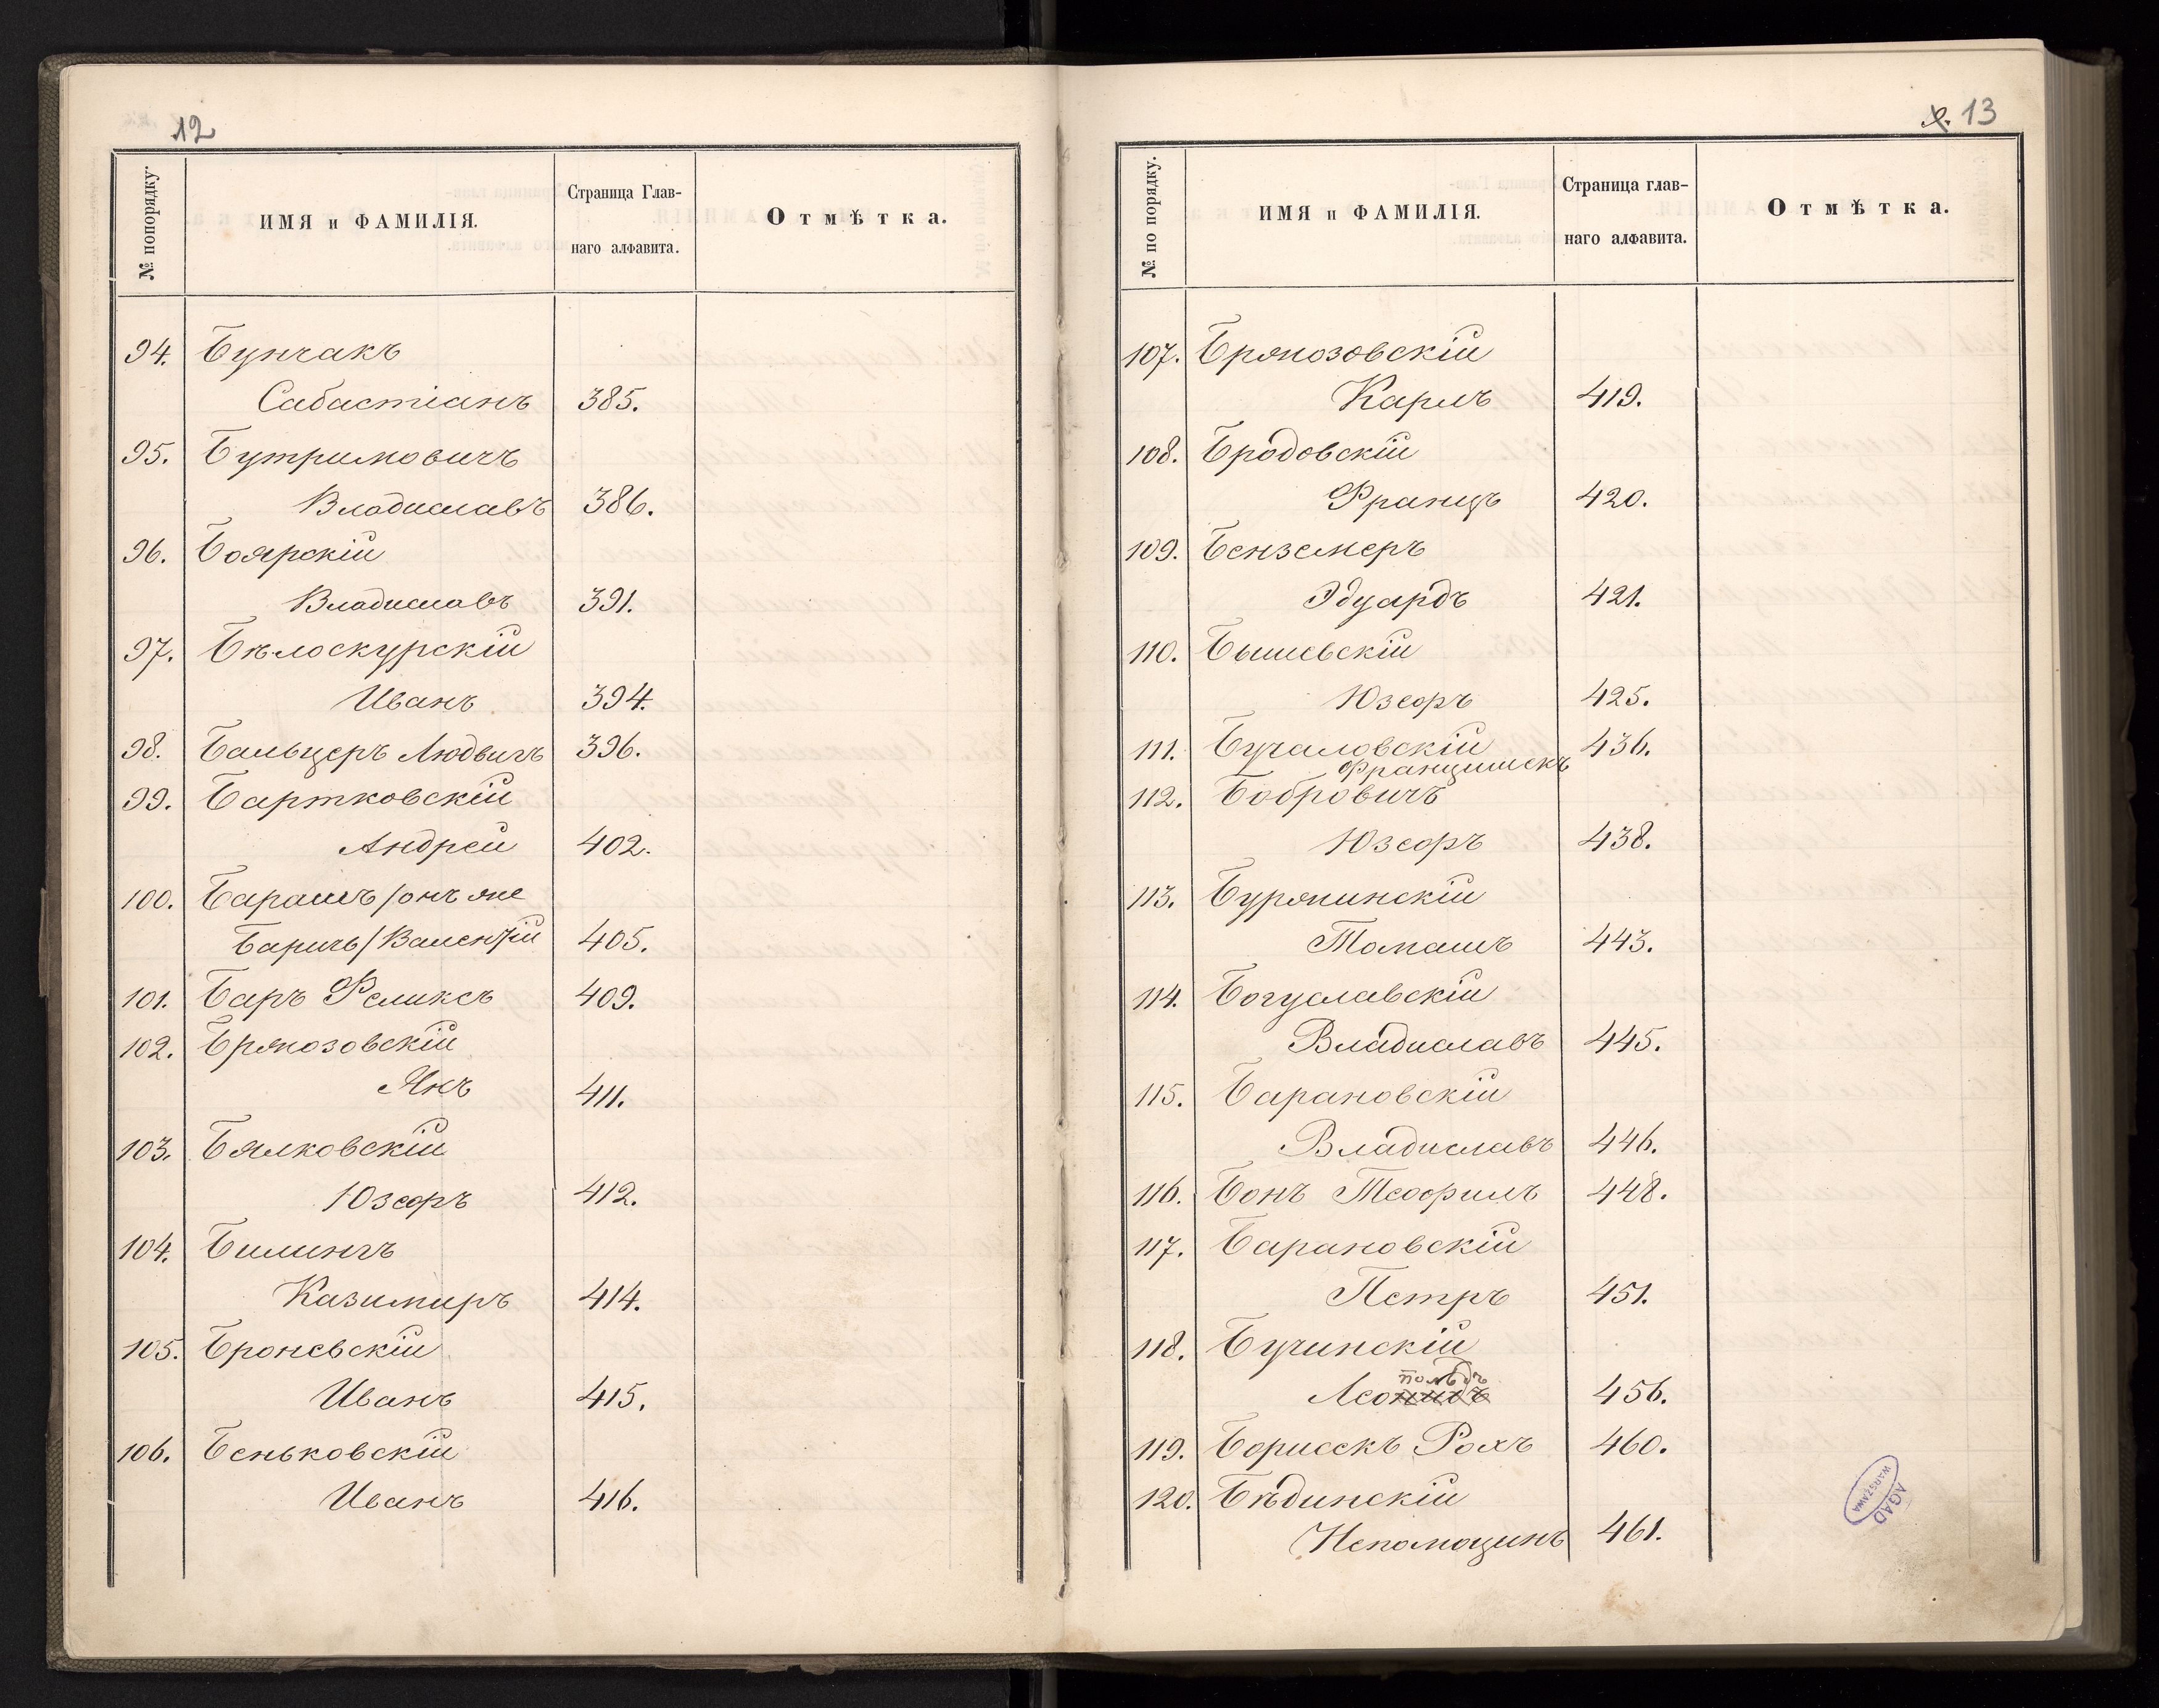 12
№ попорядку.
ИМЯ и ФАМИЛІЯ.
Страница Глав-
наго алфавита.
Отмѣтка.
94. Бунчакъ
Сабастіанъ 385.
95. Бутримовичъ
Владиславъ 386.
96. Боярскій
Владиславъ 391.
97. Бѣлоскурскій
Иванъ 394.
98. Бальцеръ Людвигъ 396.
99. Бартковскій
Андрей 402.
100. Барашъ /онъ же
Баричъ/ Валентій 405.
101. Баръ Феликсъ 409.
102. Бржозовскій
Янъ 411.
103. Бялковскій
Юзефъ 412.
104. Билингъ
Казимиръ 414.
105. Броневскій
Иванъ 415.
106. Беньковскій
Иванъ 416.
13
№ по порядку.
ИМЯ и ФАМИЛІЯ.
Страница глав-
наго алфавита.
Отмѣтка.
107. Бржозовскій
Карлъ 419.
108. Бродовскій
Францъ 420.
109. Бенземеръ
Эдуардъ 421.
110. Бышевскій
Юзефъ 425.
111. Бучаловскій 436.
Францишекъ
112. Бобровичъ
Юзефъ 438.
113. Буржинскій
Томашъ 443.
114. Богуславскій
Владиславъ 445.
115. Барановскій
Владиславъ 446.
116. Бонъ Теофилъ 448.
117. Барановскій
Петръ 451.
118. Бучинскій
польдъ
Леонидъ 456.
119. Борисекъ Рохъ 460.
120. Бѣдинскій
Непомоцинъ 461.
AGAD
WARSZAWA